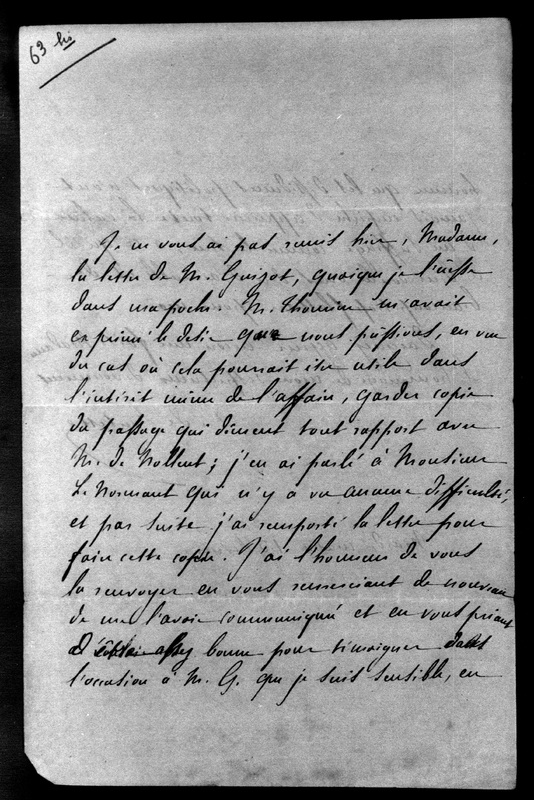 63 bis
Je ne vous ai pas remis hier, Madame,
la lettre de M. Guizot, quoique je l'eusse
dans ma poche. M. Thomine m'avait
exprimé le desir que nous pussions, en vue
du cas où cela pourrait être utile dans
l'intérêt même de l'affaire, garder copie
du passage qui dément tout rapport avec
M. de Nollent ; j'en ai parlé à Monsieur
Le Normant qui n'y a vu aucune difficulté,
et par suite j'ai remporté la lettre pour
faire cette copie. J'ai l'honneur de vous
la renvoyer en vous remerciant de nouveau
de me l'avoir communiqué et en vous priant
d'être assez bonne pour témoigner dans
l'occasion à M. G. que je suis sensible, en